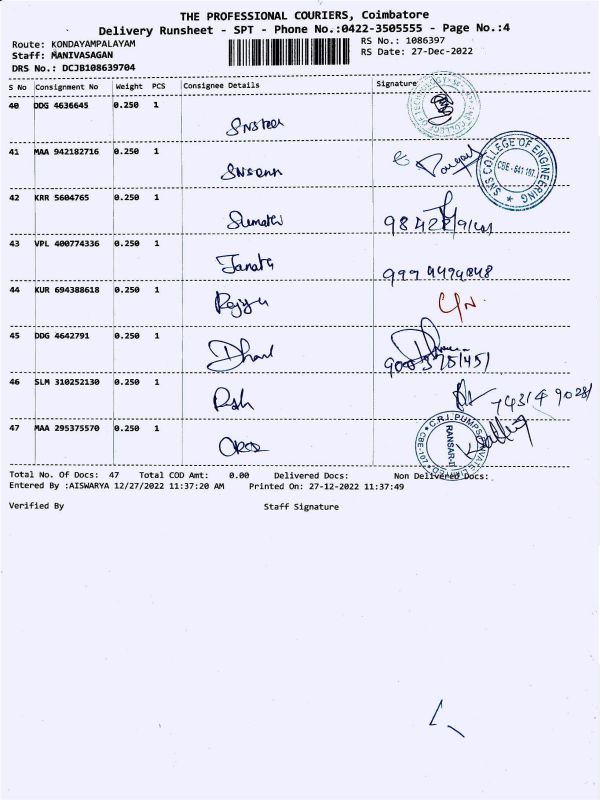 THE PROFESSIONAL COURIERS, Coimbatore
Delivery Runsheet - SPT - Phone No.:0422-3505555 - Page No.:4
Route: KONDAYAMPALAYAM
RS No.: 1086397
Staff: MANIVASAGAN
RS Date: 27-Dec-2022
DRS No.: DCJB108639704
S No Consignment No Weight PCS Consignee Details Signature
40 DDG 4636645 0.250 1
41 MAA 942182716 0.250 1
SNS COLLEGE OF ENGINEERING
CBE - 641 107.
42 KRR 5604765 0.250 1 Sumathi
43 VPL 400774336 0.250 1 Janata
44 KUR 694388618 0.250 1
45 DDG 4642791 0.250 1
46 SLM 310252130 0.250 1
47 MAA 295375570 0.250 1
Total No. Of Docs: 47 Total COD Amt: 0.00 Delivered Docs: Non Delivered Docs:
Entered By :AISWARYA 12/27/2022 11:37:20 AM Printed On: 27-12-2022 11:37:49
Verified By Staff Signature